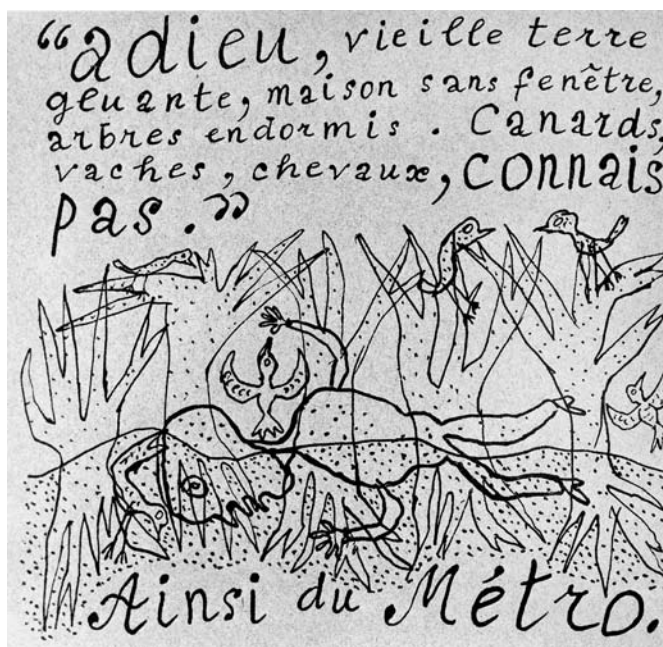 “adieu, vieille terre
gluante, maison sans fenêtre,
arbres endormis. Canards,
vaches, chevaux, connais
pas.”
Ainsi du Métro.